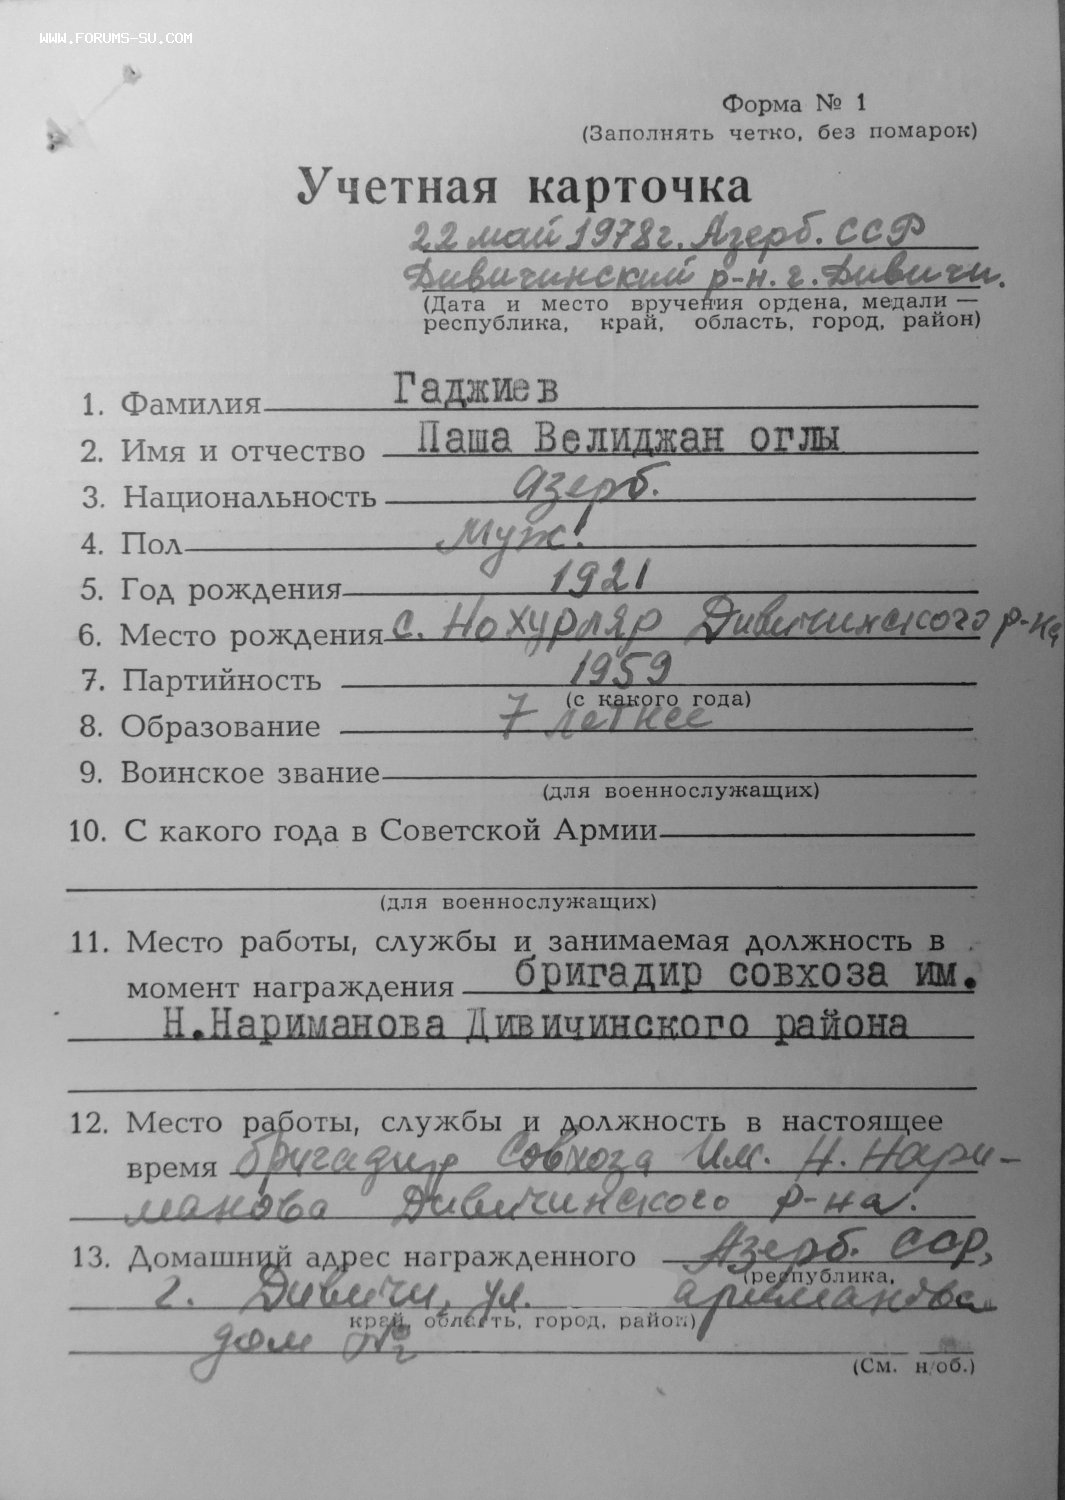 WWW.FORUMS-SU.COM
Форма № 1
(Заполнять четко, без помарок)
Учетная карточка
22 май 1978 г. Азерб. ССР
Дивичинский р-н. г. Дивичи.
(Дата и место вручения ордена, медали —
республика, край, область, город, район)
1. Фамилия Гаджиев
2. Имя и отчество Паша Велиджан оглы
3. Национальность Азерб.
4. Пол Муж.
5. Год рождения 1921
6. Место рождения с. Нохурляр Дивичинского р-на
7. Партийность 1959
(с какого года)
8. Образование 7 летнее
9. Воинское звание
(для военнослужащих)
10. С какого года в Советской Армии
(для военнослужащих)
11. Место работы, службы и занимаемая должность в
момент награждения бригадир совхоза им.
Н.Нариманова Дивичинского района
12. Место работы, службы и должность в настоящее
время бригадир Совхоза Им. Н. Нари-
манова Дивичинского р-на.
13. Домашний адрес награжденного Азерб. ССР,
(республика,
г. Дивичи, ул. ариманова
край, область, город, район)
дом №
(См. н/об.)